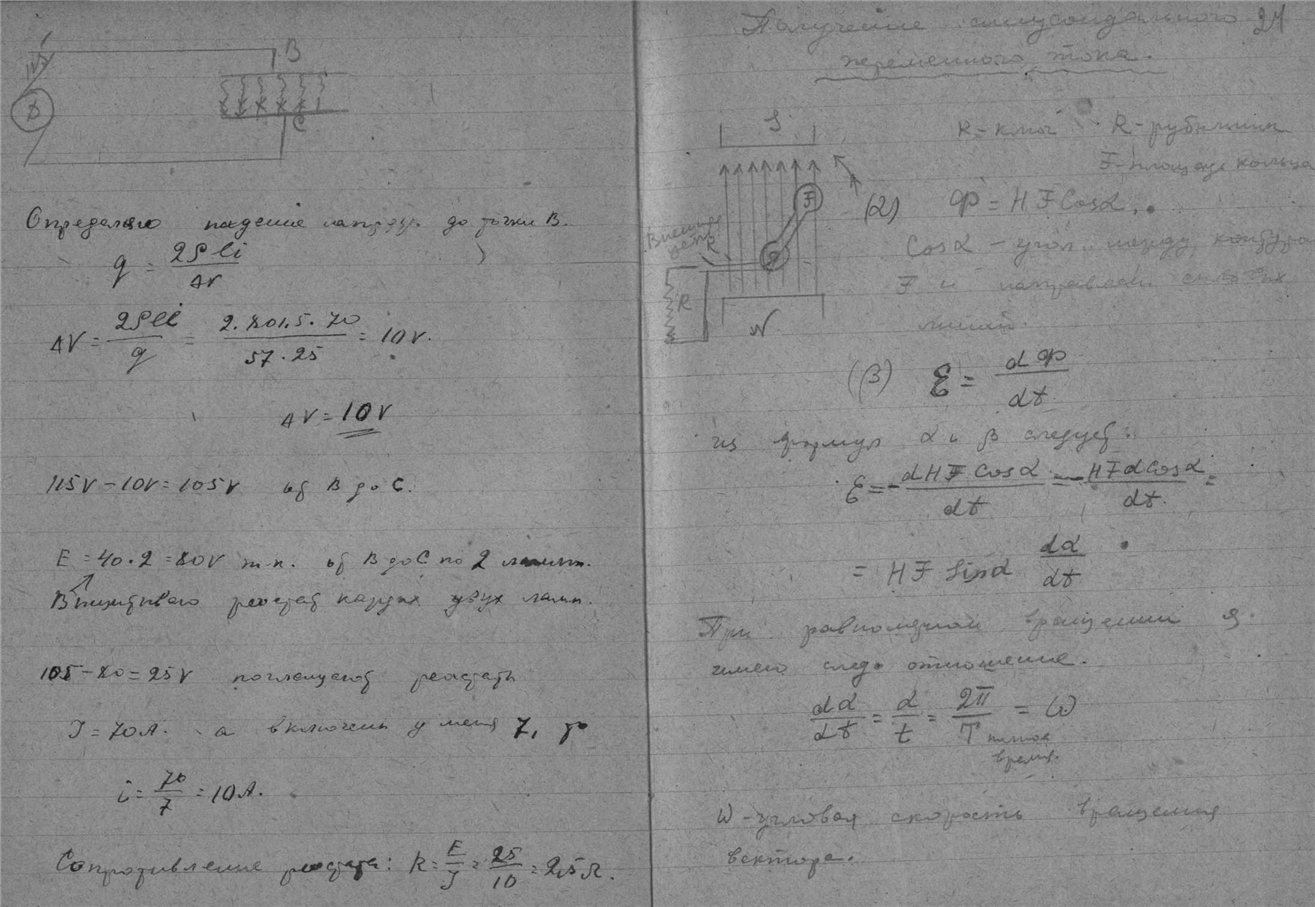 115V
B
D
C
Определяю падение напряж. до точки B.
q = 2ρli / ΔV
ΔV = 2ρli / q = 2·801,5·70 / 57·25 = 10V.
ΔV = 10V
115V – 10V = 105V от B до C.
E = 40·2 = 80V т.к. от B до C по 2 лампы.
реостат каждых двух ламп.
105 – 80 = 25V поглощают реостаты
J = 70A. а включены у меня 7, то
i = 70/7 = 10A.
Сопротивление реостата: R = E/J = 25/10 = 2,5Ω.
Получение синусоидального 27
переменного тока.
S
K – ключ R – рубильник
F – площадь кольца
F
Внешняя
цепь
K
R
N
(α) φ = H F Cosα.
Cosα – угол между контуром
F и направлен. силовых
линий.
(β) ℰ = dφ / dt
из формул α и β следует:
ℰ = – dHF Cosα / dt = – HF dCosα / dt =
= HF Sinα dα/dt
При равномерном вращении Я
имею след. отношение.
dα/dt = α/t = 2π/T = ω
время.
ω – угловая скорость вращения
вектора.